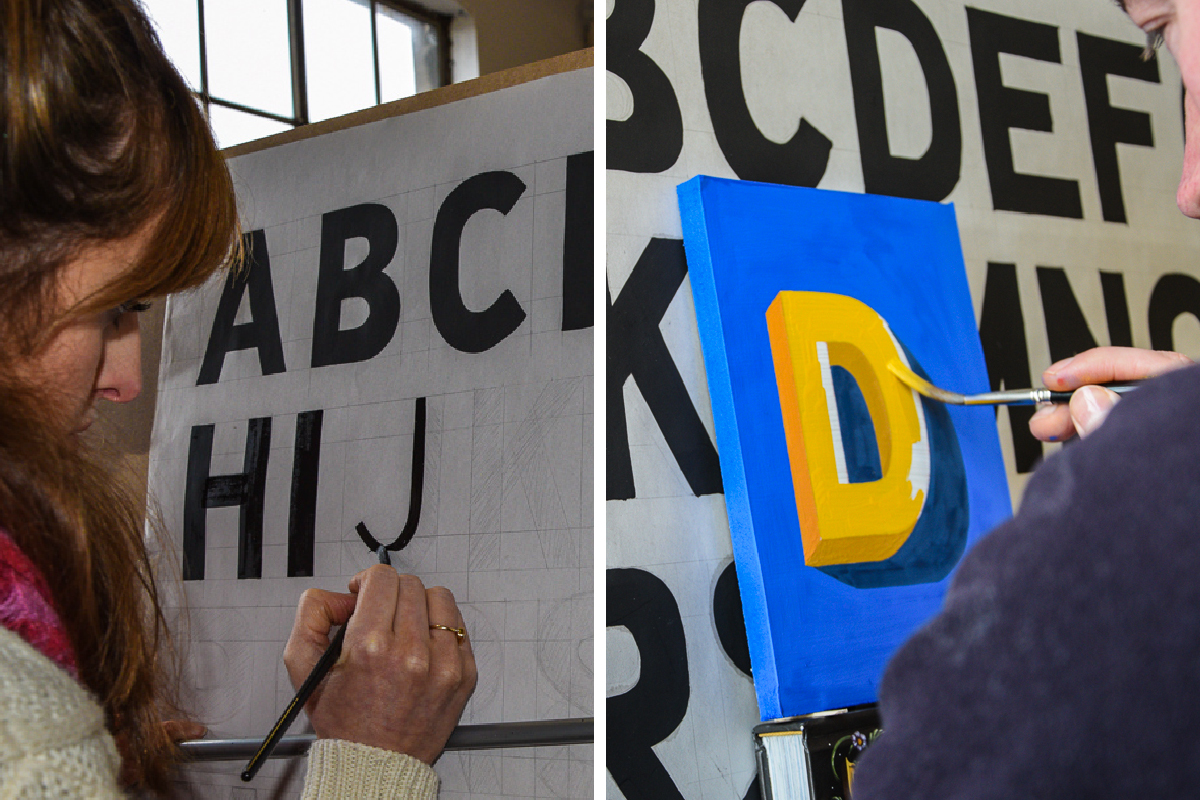 ABC
HIJ
BCDEF
K MN
D
R